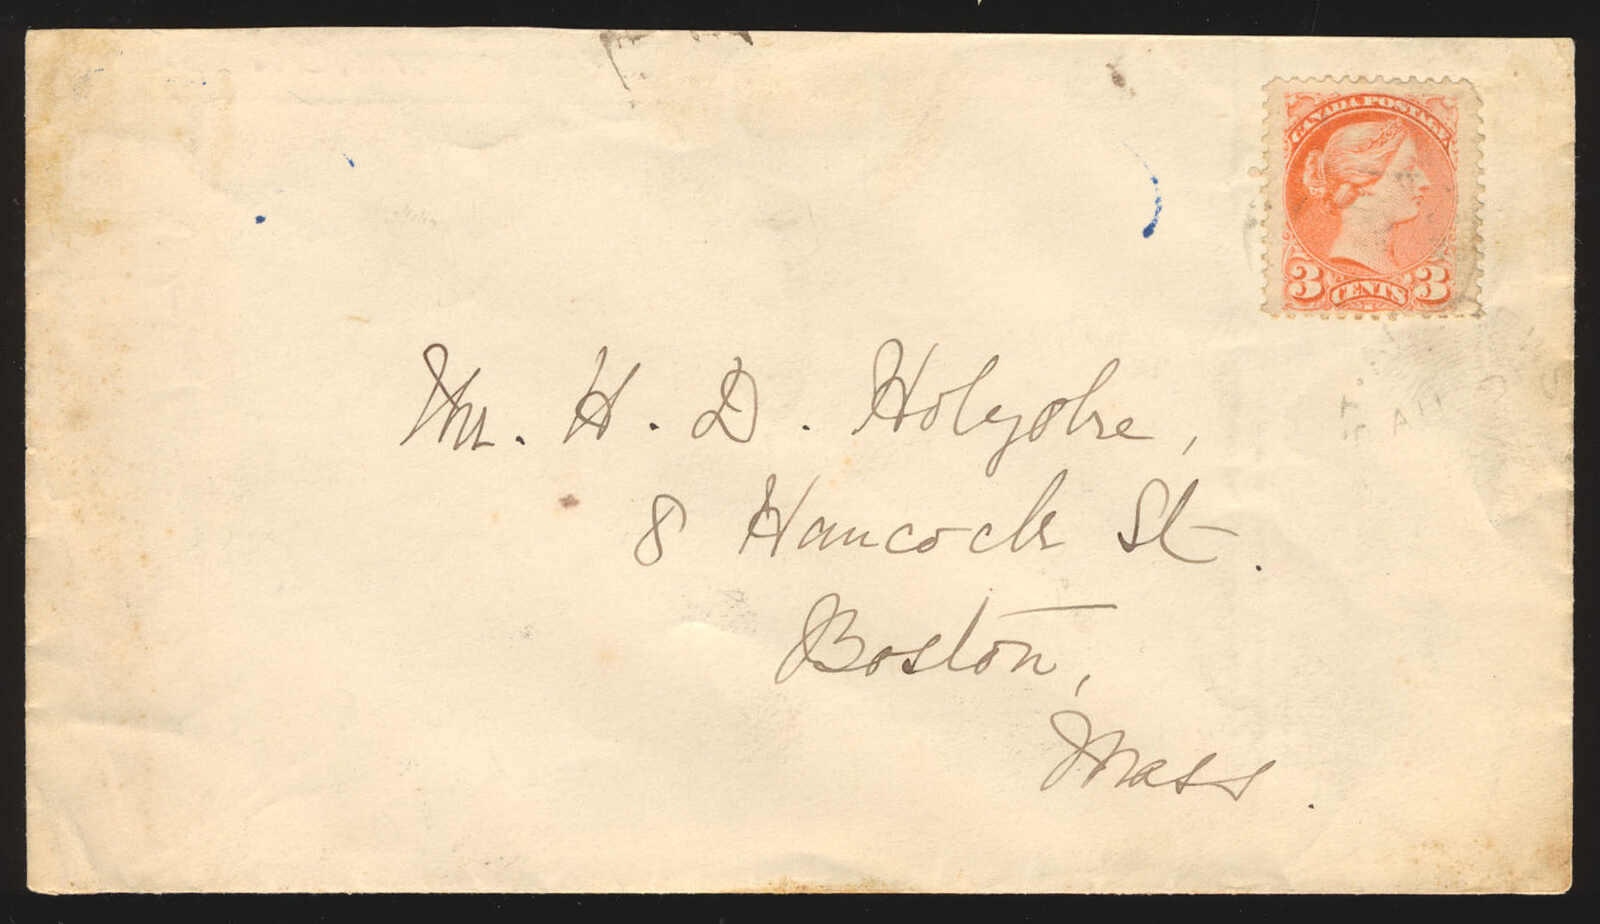 CANADA POSTAGE
3 CENTS 3
Mr. H. D. Holyoke,
8 Hancock St.
Boston,
Mass.